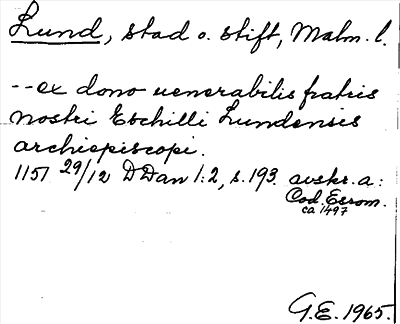 Lund, stad o. stift, Malm. l.
-- ex dono venerabilis fratris
nostri Eschilli Lundensis
archiepiscopi.
1151 29/12 DDan 1:2, s. 193. avskr. a:
Cod. Esrom.
ca 1497
G.E. 1965.